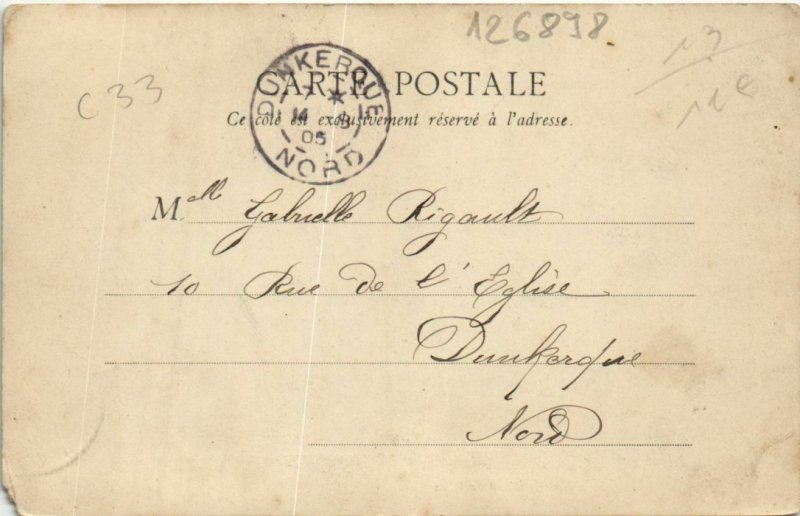 126898
C33
13
11e
DUNKERQUE
14
05
NORD
CARTE POSTALE
Ce côté est exclusivement réservé à l'adresse.
Melle Gabrielle Rigault
10 Rue de l'Eglise
Dunkerque
Nord